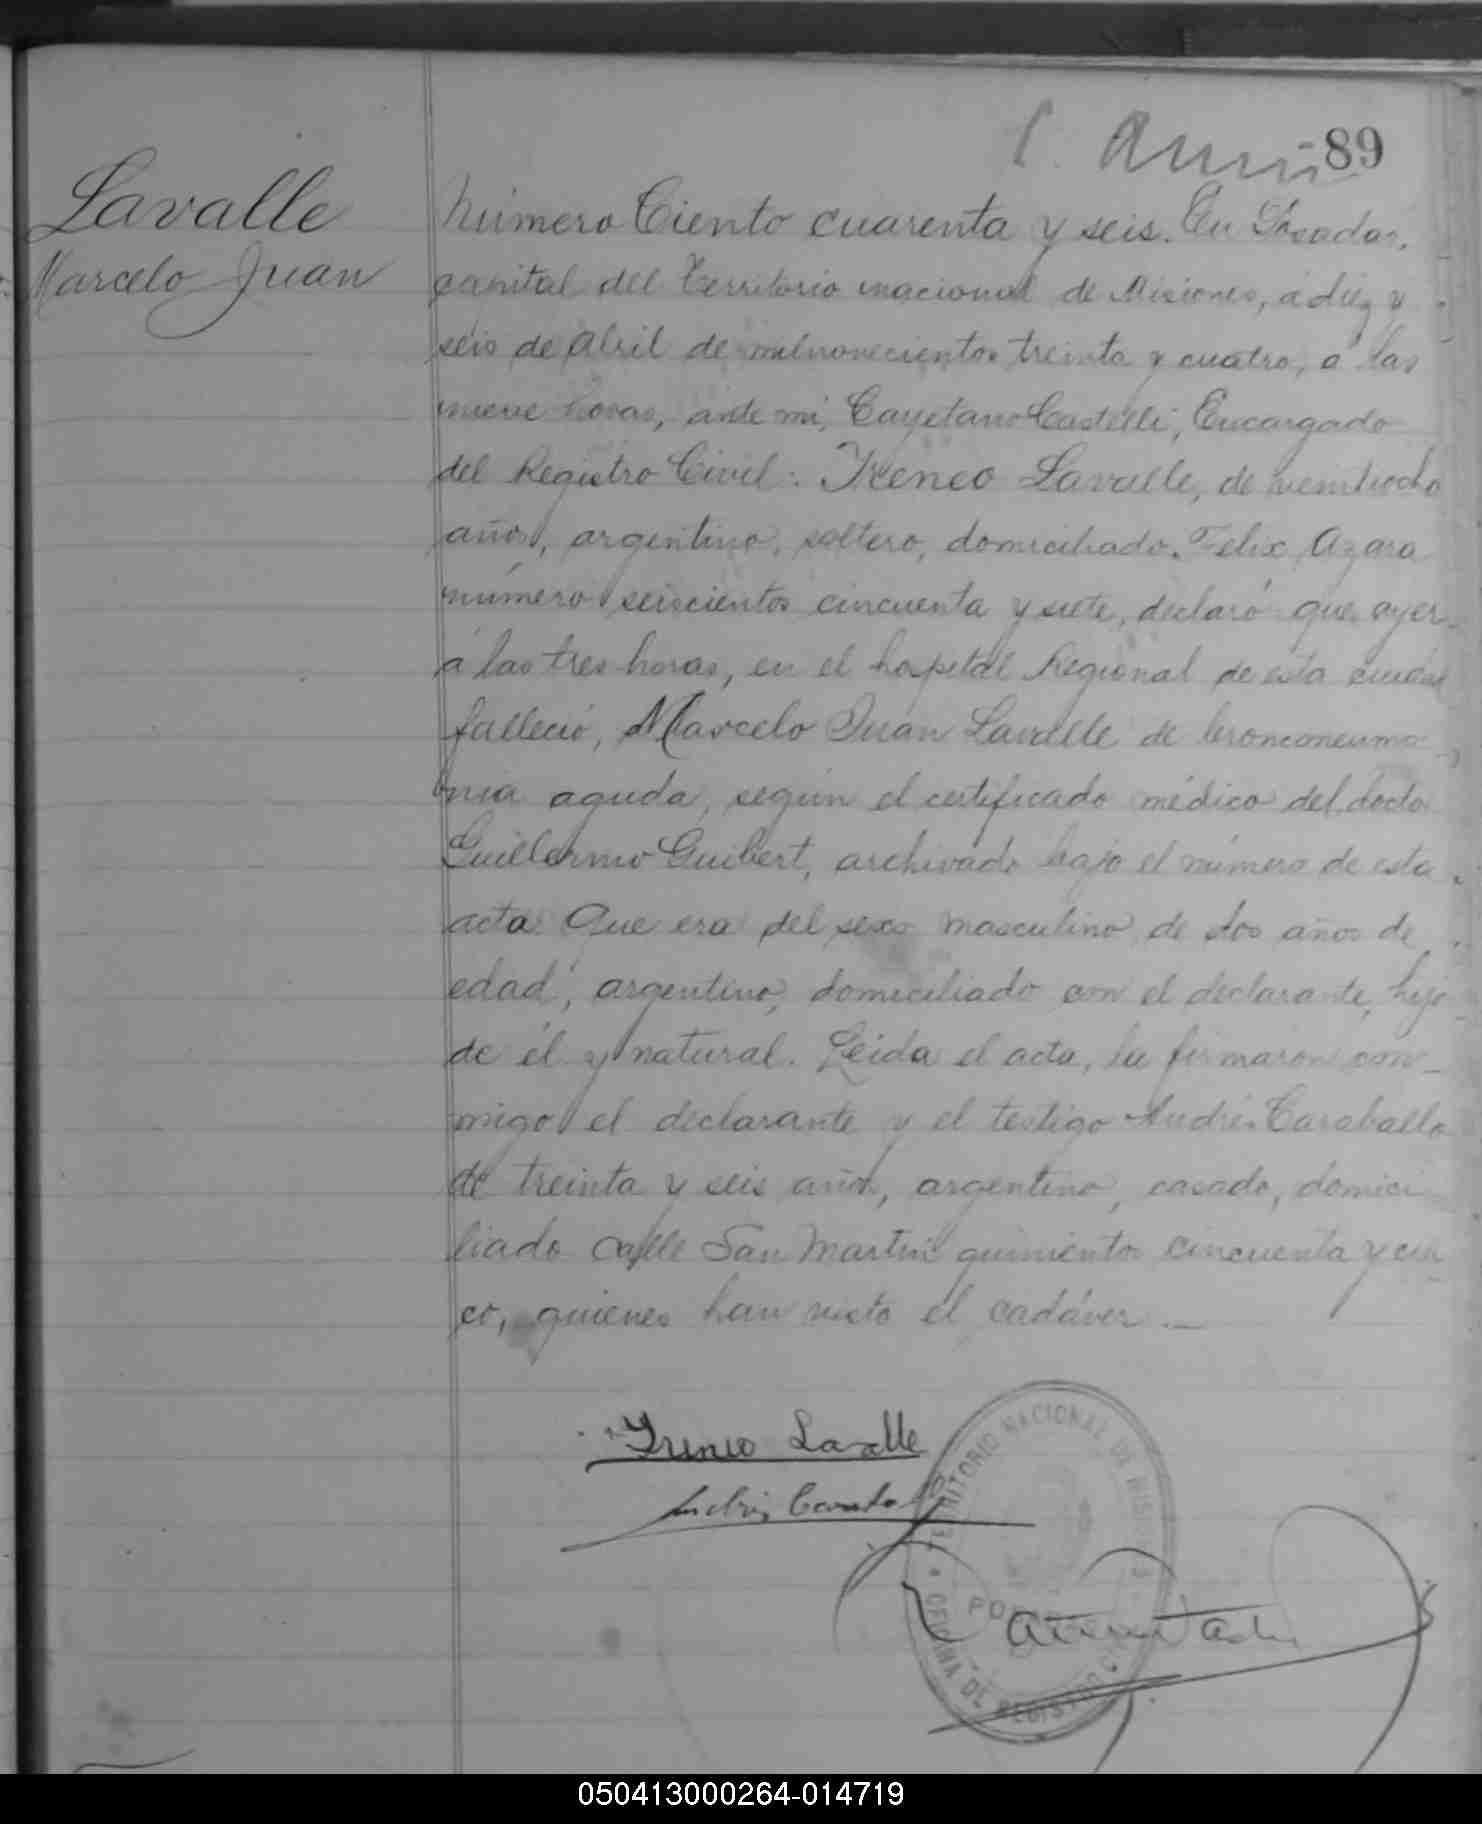 89
Lavalle
Marcelo Juan
Número Ciento cuarenta y seis. En Posadas,
capital del territorio nacional de Misiones, á diez y
seis de Abril de milnovecientos treinta y cuatro, á las
nueve horas, ante mi, Cayetano Castelli, Encargado
del Registro Civil: Ireneo Lavalle, de veintiocho
años, argentino, soltero, domiciliado Felix Azara
número seiscientos cincuenta y siete, declaró que ayer
á las tres horas, en el hospital Regional de esta ciudad
falleció, Marcelo Juan Lavalle de bronconeumo-
nia aguda, según el certificado médico del doctor
Guillermo Guibert, archivado bajo el número de esta
acta. Que era del sexo masculino de dos años de
edad, argentino, domiciliado con el declarante, hijo
de él y natural. Leida el acta, la firmaron con-
migo el declarante y el testigo Andrés Caraballo
de treinta y seis años, argentino, casado, domici-
liado calle San Martin quinientos cincuenta y cin-
co, quienes han visto el cadáver.—
Ireneo Lavalle
TERRITORIO NACIONAL DE MISIONES
OFICINA DE REGISTRO
050413000264-014719